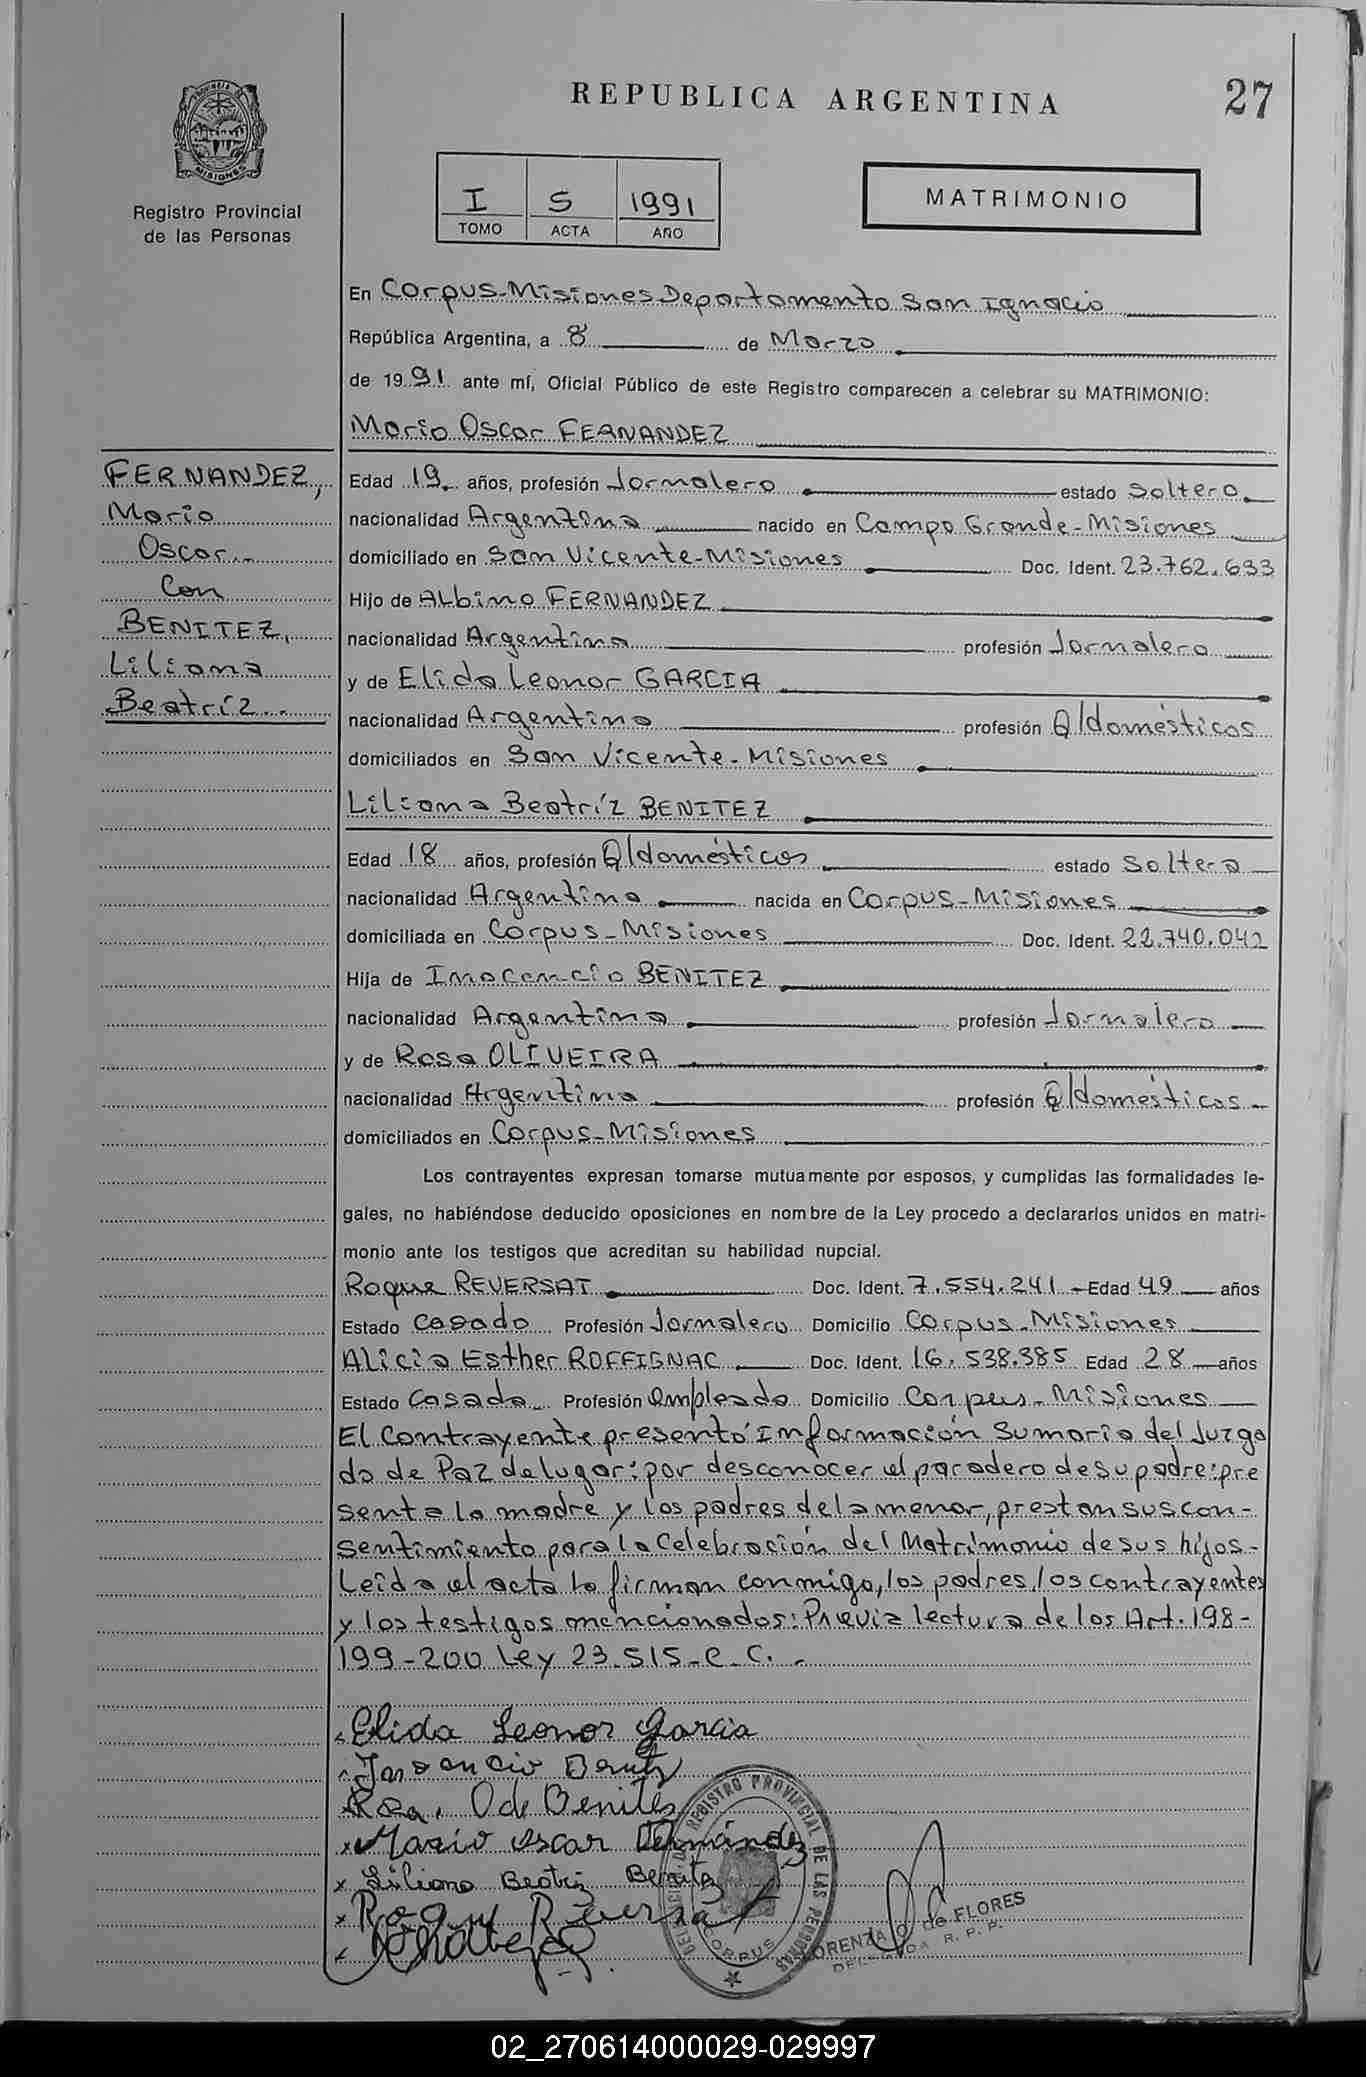 REPUBLICA ARGENTINA
27
PROVINCIA DE
MISIONES
Registro Provincial
de las Personas
I S 1991
TOMO ACTA AÑO
MATRIMONIO
En Corpus-Misiones Departamento San Ignacio
República Argentina, a 8 de Marzo
de 1991 ante mí, Oficial Público de este Registro comparecen a celebrar su MATRIMONIO:
Mario Oscar FERNANDEZ
FERNANDEZ,
Mario
Oscar
Con
BENITEZ,
Liliana
Beatríz
Edad 19 años, profesión Jornalero estado Soltero
nacionalidad Argentina nacido en Campo Grande-Misiones
domiciliado en San Vicente-Misiones Doc. Ident. 23.762.633
Hijo de Albino FERNANDEZ
nacionalidad Argentina profesión Jornalero
y de Elida Leonor GARCIA
nacionalidad Argentina profesión Q/domésticos
domiciliados en San Vicente-Misiones
Liliana Beatríz BENITEZ
Edad 18 años, profesión Q/domésticos estado Soltera
nacionalidad Argentina nacida en Corpus-Misiones
domiciliada en Corpus-Misiones Doc. Ident. 22.740.042
Hija de Inocencio BENITEZ
nacionalidad Argentina profesión Jornalero
y de Rosa OLIVEIRA
nacionalidad Argentina profesión Q/domésticos
domiciliados en Corpus-Misiones
Los contrayentes expresan tomarse mutuamente por esposos, y cumplidas las formalidades le-
gales, no habiéndose deducido oposiciones en nombre de la Ley procedo a declararlos unidos en matri-
monio ante los testigos que acreditan su habilidad nupcial.
Roque REVERSAT Doc. Ident. 7.554.241 Edad 49 años
Estado Casado Profesión Jornalero Domicilio Corpus-Misiones
Alicia Esther ROFFIGNAC Doc. Ident. 16.538.385 Edad 28 años
Estado Casada Profesión empleada Domicilio Corpus-Misiones
El Contrayente presentó Información Sumaria del Juzga
do de Paz de lugar: por desconocer el paradero de su padre: pre
senta la madre y los padres de la menor, prestan su con-
sentimiento para la Celebración del Matrimonio de sus hijos-
Leída el acta la firman conmigo, los padres, los contrayentes
y los testigos mencionados: Previa lectura de los Art. 198-
199-200 Ley 23.515-C.C.
Elida Leonor Garcia
Inosencio Benitez
Rosa O de Benites
Mario Oscar Fernández
Liliana Beatriz Benitez
Roque Reversat
REGISTRO PROVINCIAL DE LAS PERSONAS
CORPUS
LORENZA O. de FLORES
R. P. P.
02_270614000029-029997